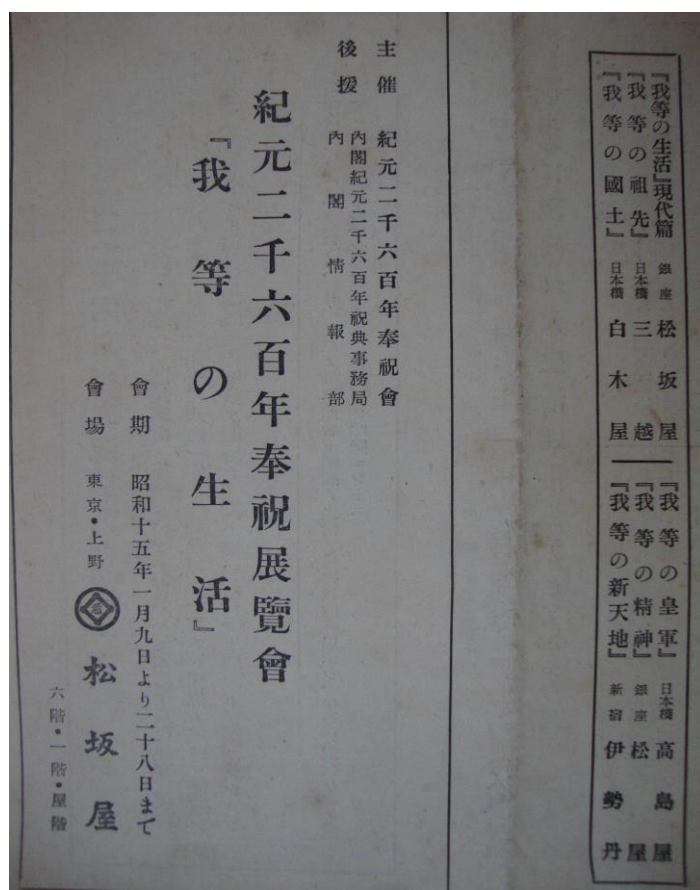 『我等の生活』現代篇 銀座 松坂屋 『我等の皇軍』 日本橋 高島屋
『我等の祖先』 日本橋 三越 『我等の精神』 銀座 松屋
『我等の國土』 日本橋 白木屋 『我等の新天地』 新宿 伊勢丹
主催 紀元二千六百年奉祝會
後援 内閣紀元二千六百年祝典事務局
内閣情報部
紀元二千六百年奉祝展覽會
『我等の生活』
會期 昭和十五年一月九日より二十八日まで
會場 東京・上野 松坂屋
六階・一階・屋階